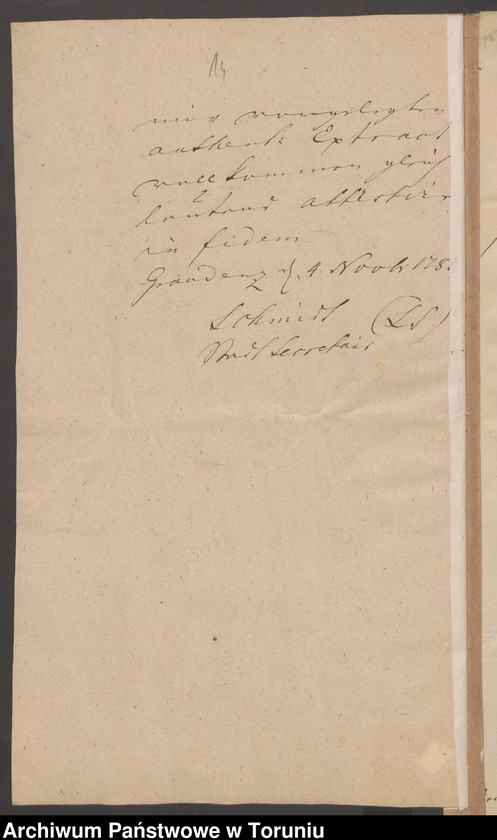 14
mir vorgelegten
authent: Extract
vollkommen gleich
lautend attestire
in fidem
Graudenz d. 4. Novbr 178
Schmidt (LS)
Stadt Secretair
Archiwum Państwowe w Toruniu